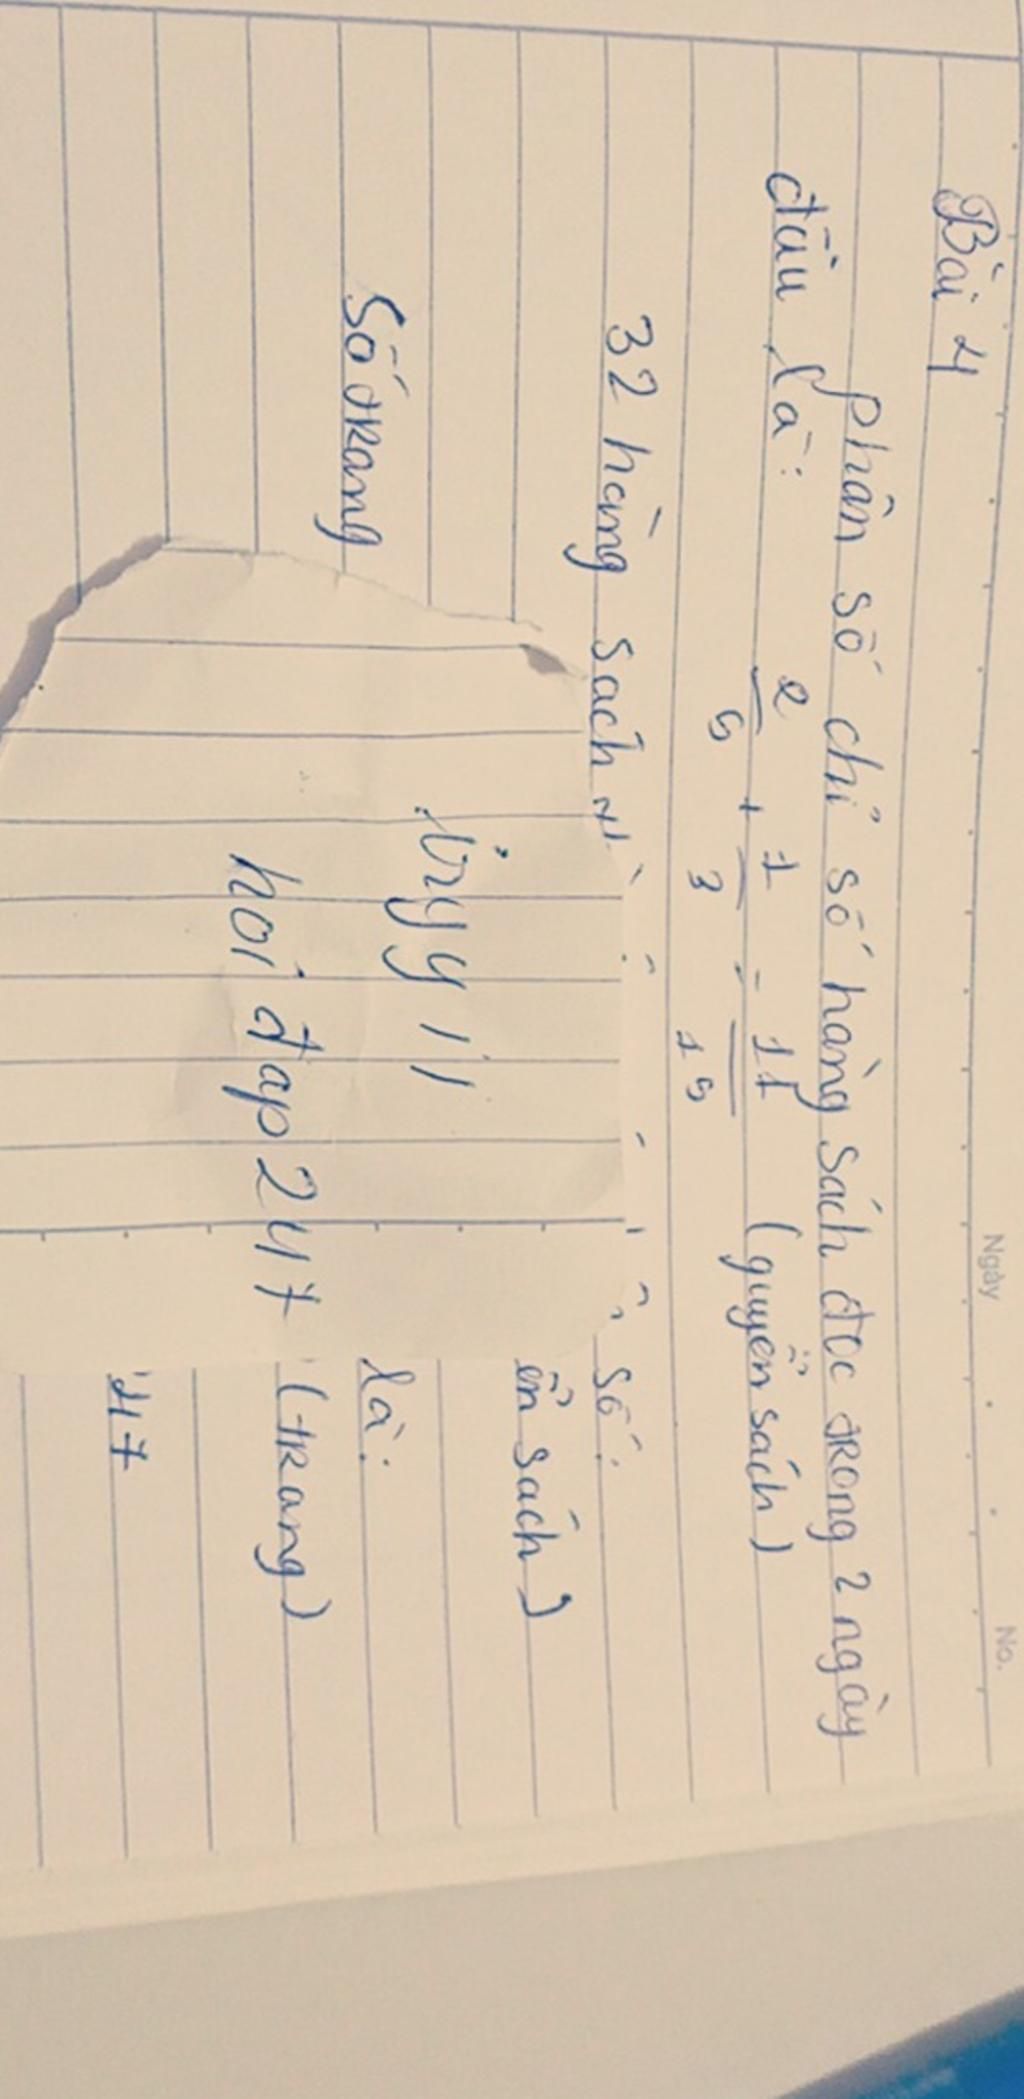 Ngày
No.
Bài 4
phân số chỉ số hàng sách đọc trong 2 ngày
đầu là:
2/5 + 1/3 = 11/15 (quyển sách)
32 hàng sách số:
ển sách)
Số trang là:
(trang)
47
hỏi đap 247